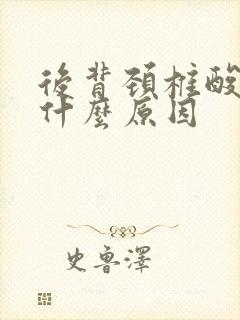 後背頚椎酸
什麼原因
史魯澤